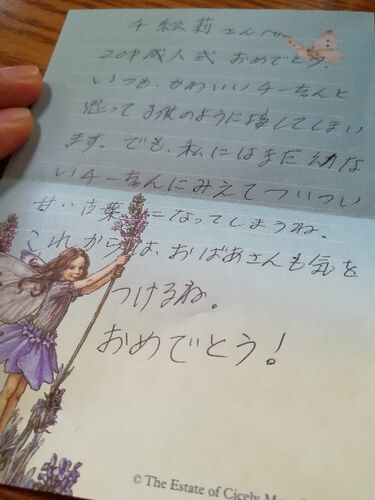 千絵莉さんへ
20才成人式 おめでとう。
いつも、かわいいチーちゃんと
思って子供のように接してしまい
ます。でも、私にはまだ幼な
いチーちゃんにみえてついつい
甘い言葉になってしまうね。
これからは、おばあさんも気を
つけるね。
おめでとう!
© The Estate of Cicely